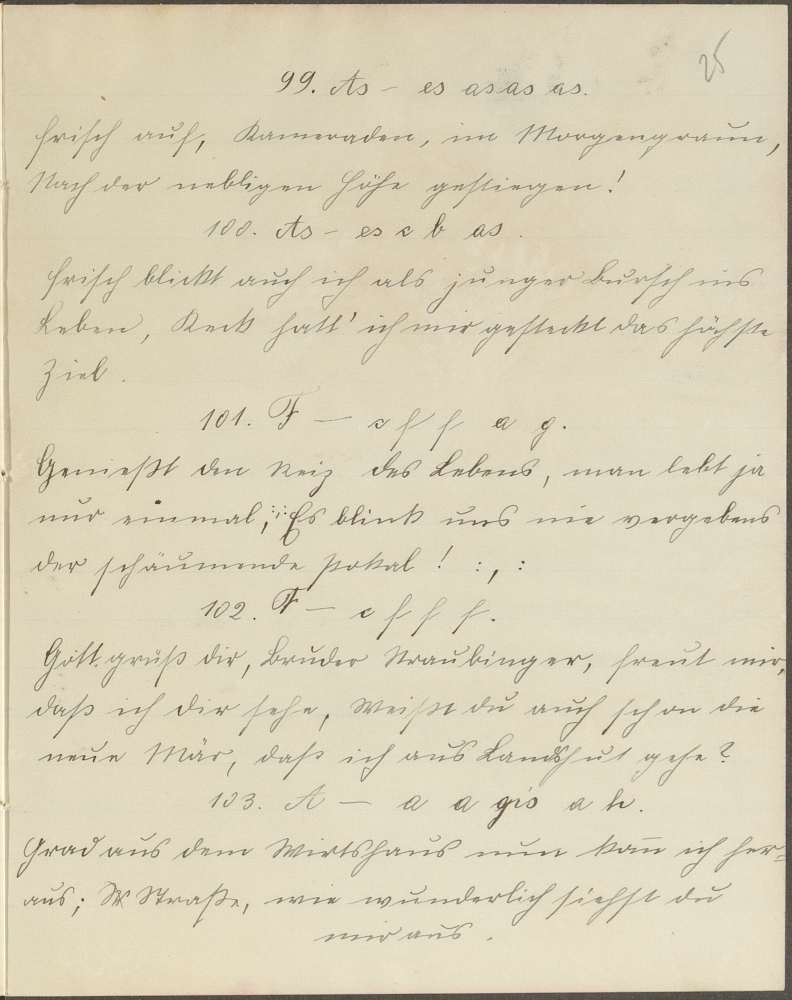 25
99. As – es as as as.
Frisch auf, Kameraden, im Morgengraun,
Nach der nebligen Höhe gestiegen!
100. As – es c b as.
Frisch blickt auch ich als junger Bursch ins
Leben, Keck hatt' ich mir gesteckt das höchste
Ziel.
101. F — c f f a g.
Genießt den Reiz des Lebens, man lebt ja
nur einmal; :,: Es blinkt uns nie vergebens
der schäumende Pokal! :,:
102. F — c f f f.
Gott grüß dir, Bruder Straubinger, freut mir,
daß ich dir sehe, Weißt du auch schon die
neue Mär, daß ich aus Landshut gehe?
103. A — a a gis a h.
Grad aus dem Wirtshaus nun kom̄ ich her-
aus; Straße, wie wunderlich siehst du
mir aus.